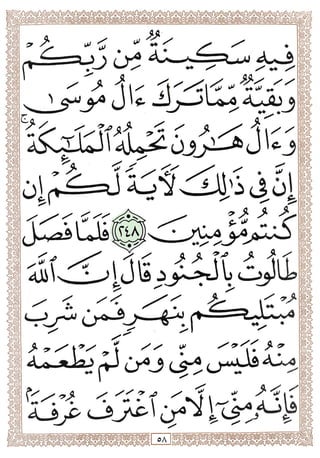 فِيهِ سَكِينَةٌ مِّن رَّبِّكُمْ
وَبَقِيَّةٌ مِّمَّا تَرَكَ ءَالُ مُوسَىٰ
وَءَالُ هَٰرُونَ تَحْمِلُهُ ٱلْمَلَٰٓئِكَةُ ۚ
إِنَّ فِى ذَٰلِكَ لَءَايَةً لَّكُمْ إِن
كُنتُم مُّؤْمِنِينَ ﴿٢٤٨﴾ فَلَمَّا فَصَلَ
طَالُوتُ بِٱلْجُنُودِ قَالَ إِنَّ ٱللَّهَ
مُبْتَلِيكُم بِنَهَرٍ فَمَن شَرِبَ
مِنْهُ فَلَيْسَ مِنِّى وَمَن لَّمْ يَطْعَمْهُ
فَإِنَّهُۥ مِنِّىٓ إِلَّا مَنِ ٱغْتَرَفَ غُرْفَةًۢ
٥٨